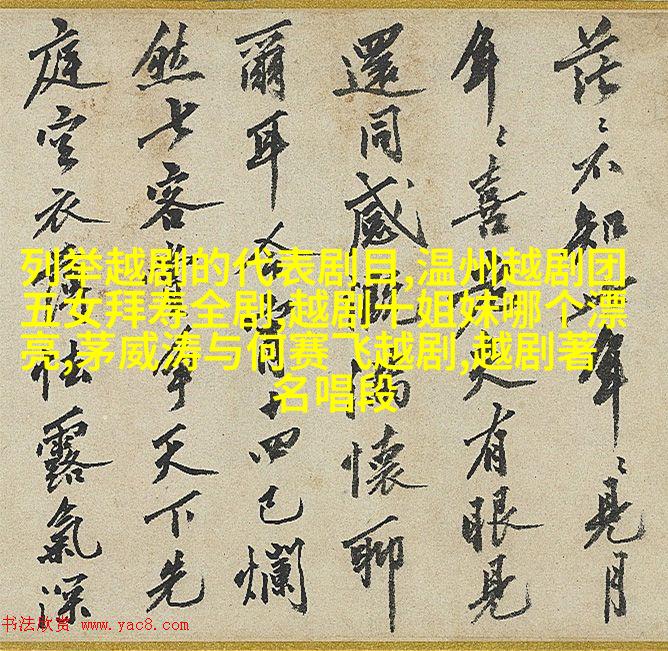 茫々不知年々見月
年々喜有眼見
還同感慨滿懷聊
爾耳十四已爛
然士客年天下先
庭空衣怯露氣深
列举越剧的代表剧目,温州越剧团
五女拜寿全剧,越剧十姐妹哪个漂
亮,茅威涛与何赛飞越剧,越剧著
名唱段
书法欣赏 www.yac8.com